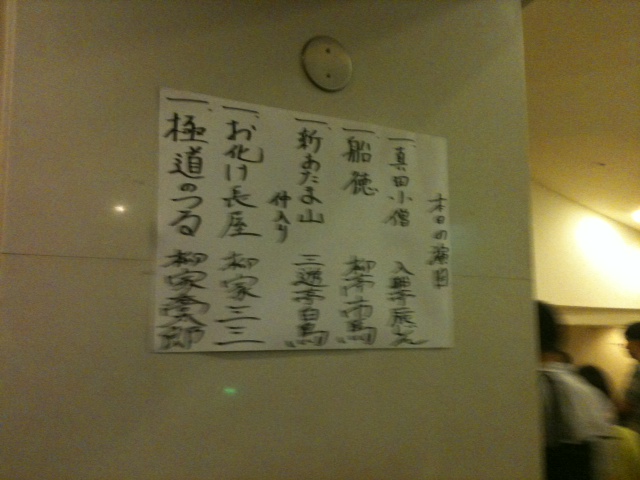 本日の演目
一、真田小僧 入船亭辰じん
一、船徳 柳亭市馬
一、新あたま山 三遊亭白鳥
仲入り
一、お化け長屋 柳家三三
一、極道のつる 柳家喬太郎